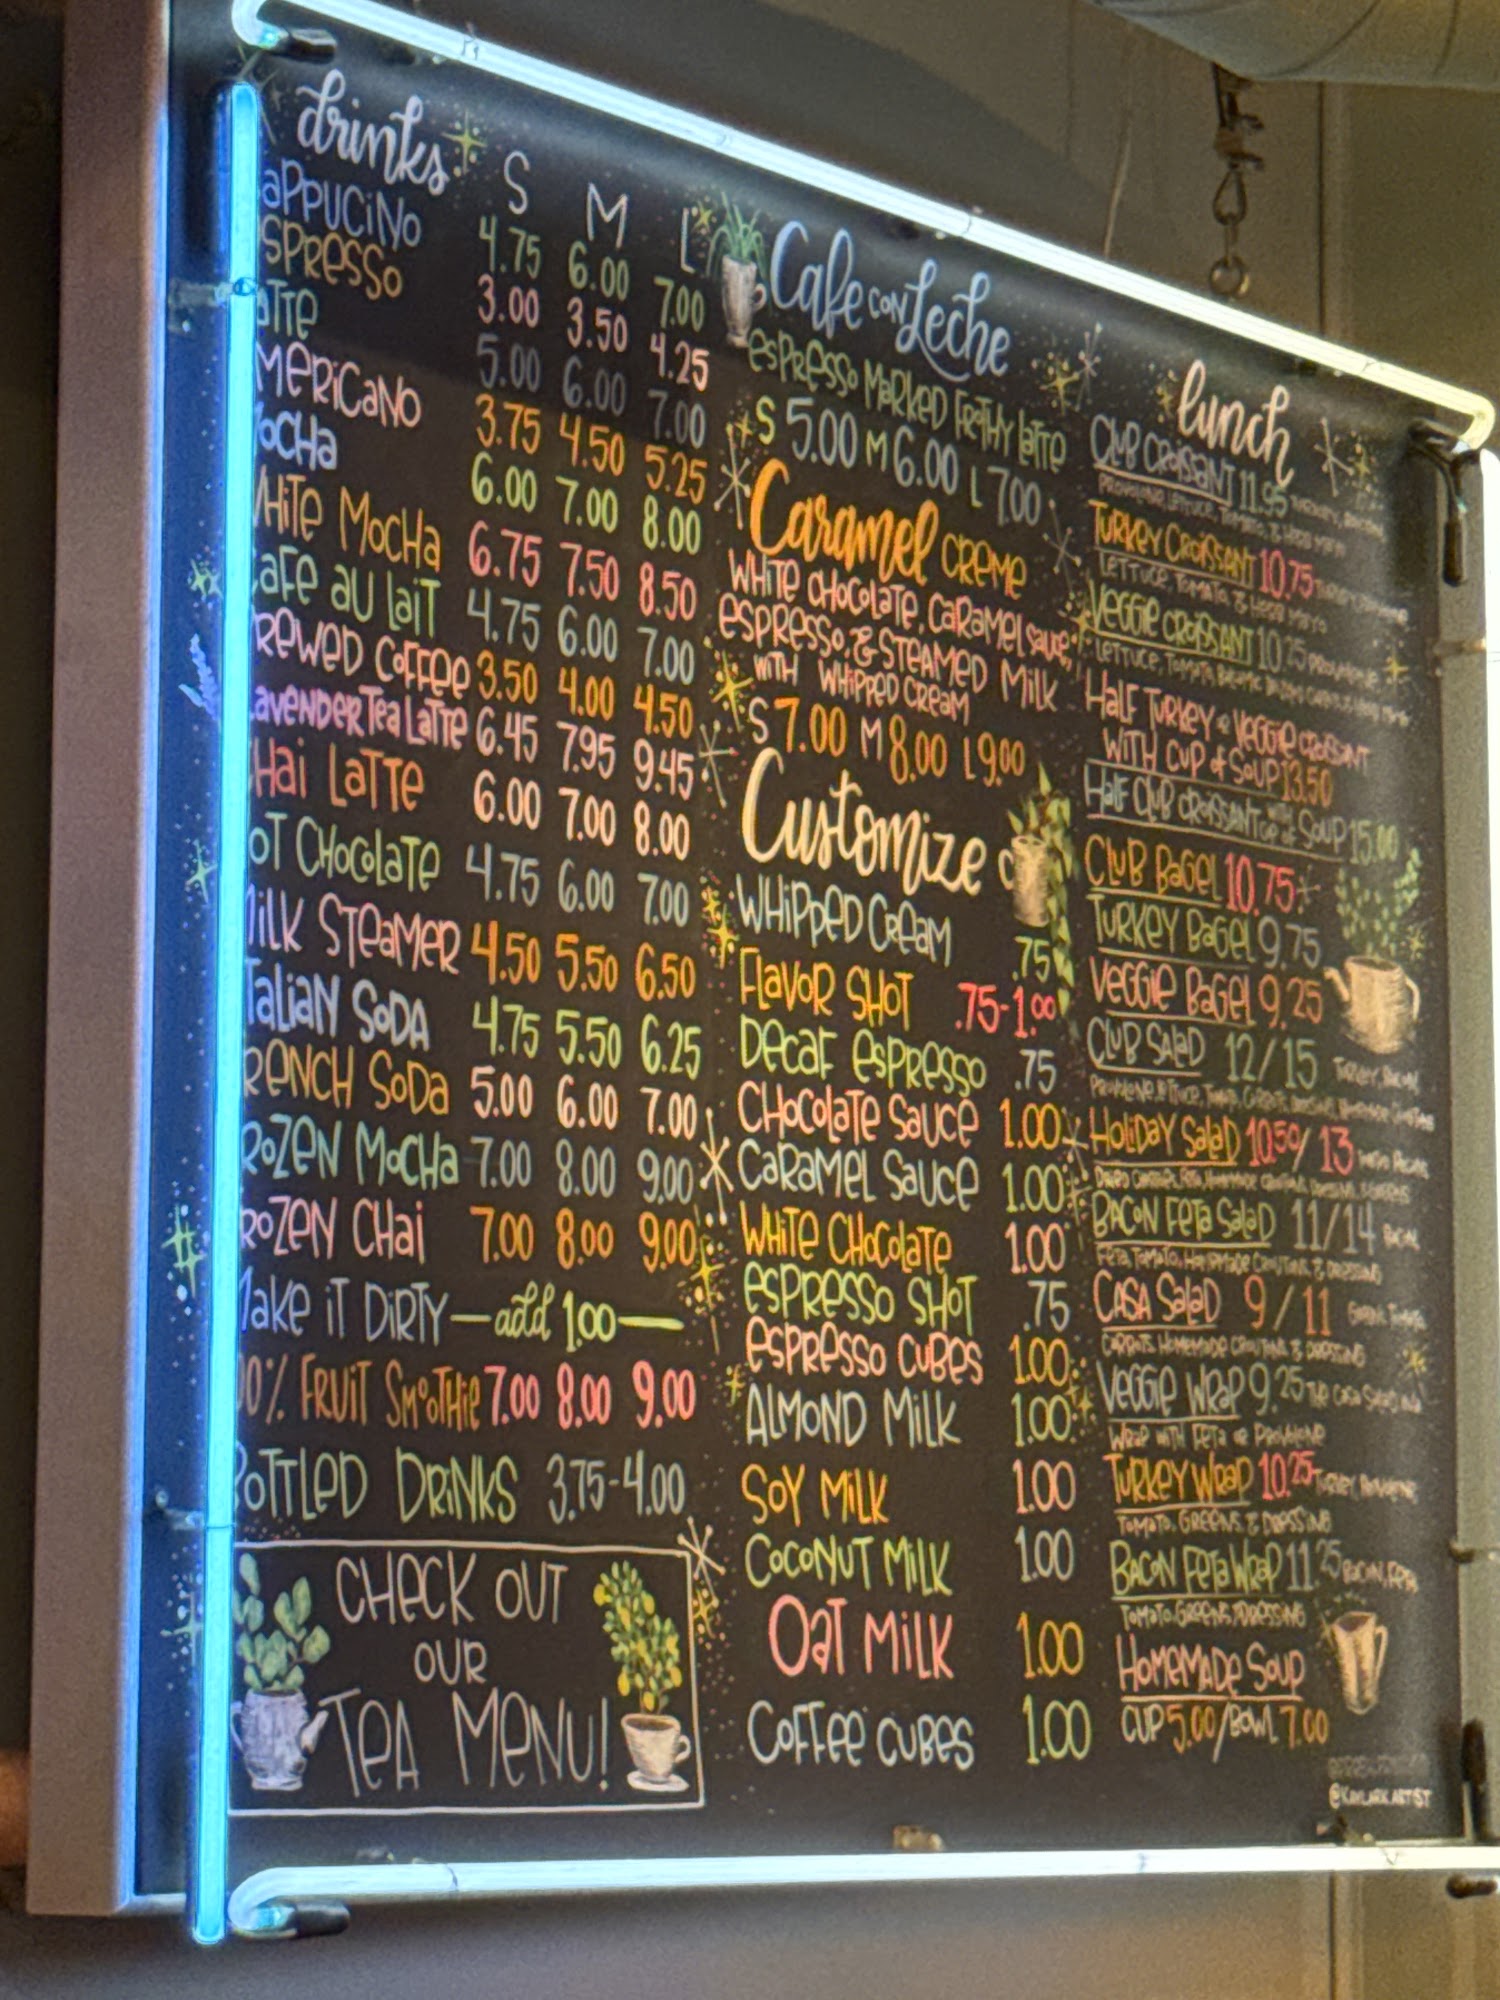 drinks S M L
appucino 4.75 6.00 7.00
spresso 3.00 3.50 4.25
atte 5.00 6.00 7.00
mericano 3.75 4.50 5.25
ocha 6.00 7.00 8.00
hite Mocha 6.75 7.50 8.50
afe au lait 4.75 6.00 7.00
rewed Coffee 3.50 4.00 4.50
avender Tea Latte 6.45 7.95 9.45
hai Latte 6.00 7.00 8.00
ot Chocolate 4.75 6.00 7.00
ilk Steamer 4.50 5.50 6.50
talian Soda 4.75 5.50 6.25
rench Soda 5.00 6.00 7.00
rozen Mocha 7.00 8.00 9.00
rozen Chai 7.00 8.00 9.00
Make it Dirty — add 1.00 —
00% Fruit Smoothie 7.00 8.00 9.00
Bottled Drinks 3.75-4.00
Check out
our
Tea Menu!
Cafe con Leche
espresso marked frothy latte
S 5.00 M 6.00 L 7.00
Caramel Creme
White Chocolate, Caramel sauce,
espresso, & steamed milk
with whipped cream
S 7.00 M 8.00 L 9.00
Customize
Whipped Cream .75
Flavor Shot .75-1.00
Decaf espresso .75
Chocolate Sauce 1.00
Caramel Sauce 1.00
White Chocolate 1.00
espresso Shot .75
espresso cubes 1.00
Almond Milk 1.00
Soy Milk 1.00
Coconut Milk 1.00
Oat Milk 1.00
Coffee cubes 1.00
lunch
Club Croissant 11.95
Provolone, Lettuce, Tomato, & Herb Mayo
Turkey Croissant 10.75
Lettuce, Tomato, & Herb Mayo
Veggie Croissant 10.25 Provolone
Lettuce, Tomato,
Half Turkey or Veggie Croissant
with cup of soup 13.50
Half Club Croissant with cup of Soup 15.00
Club Bagel 10.75
Turkey Bagel 9.75
Veggie Bagel 9.25
Club Salad 12/15 Turkey, Bacon,
Provolone, Lettuce, Tomato,
Holiday Salad 10.50/13
Bacon Feta Salad 11/14 Bacon
Feta, Tomato, Homemade Croutons, & Dressing
Casa Salad 9/11
Carrots, Homemade Croutons, & Dressing
Veggie Wrap 9.25 The Casa Salad in a
Wrap with Feta or Provolone
Turkey Wrap 10.25 Turkey, Provolone
Tomato, Greens, & Dressing
Bacon Feta Wrap 11.25 Bacon, Feta
Tomato, Greens, & Dressing
Homemade Soup
Cup 5.00/Bowl 7.00
@KAYLARK.ARTIST